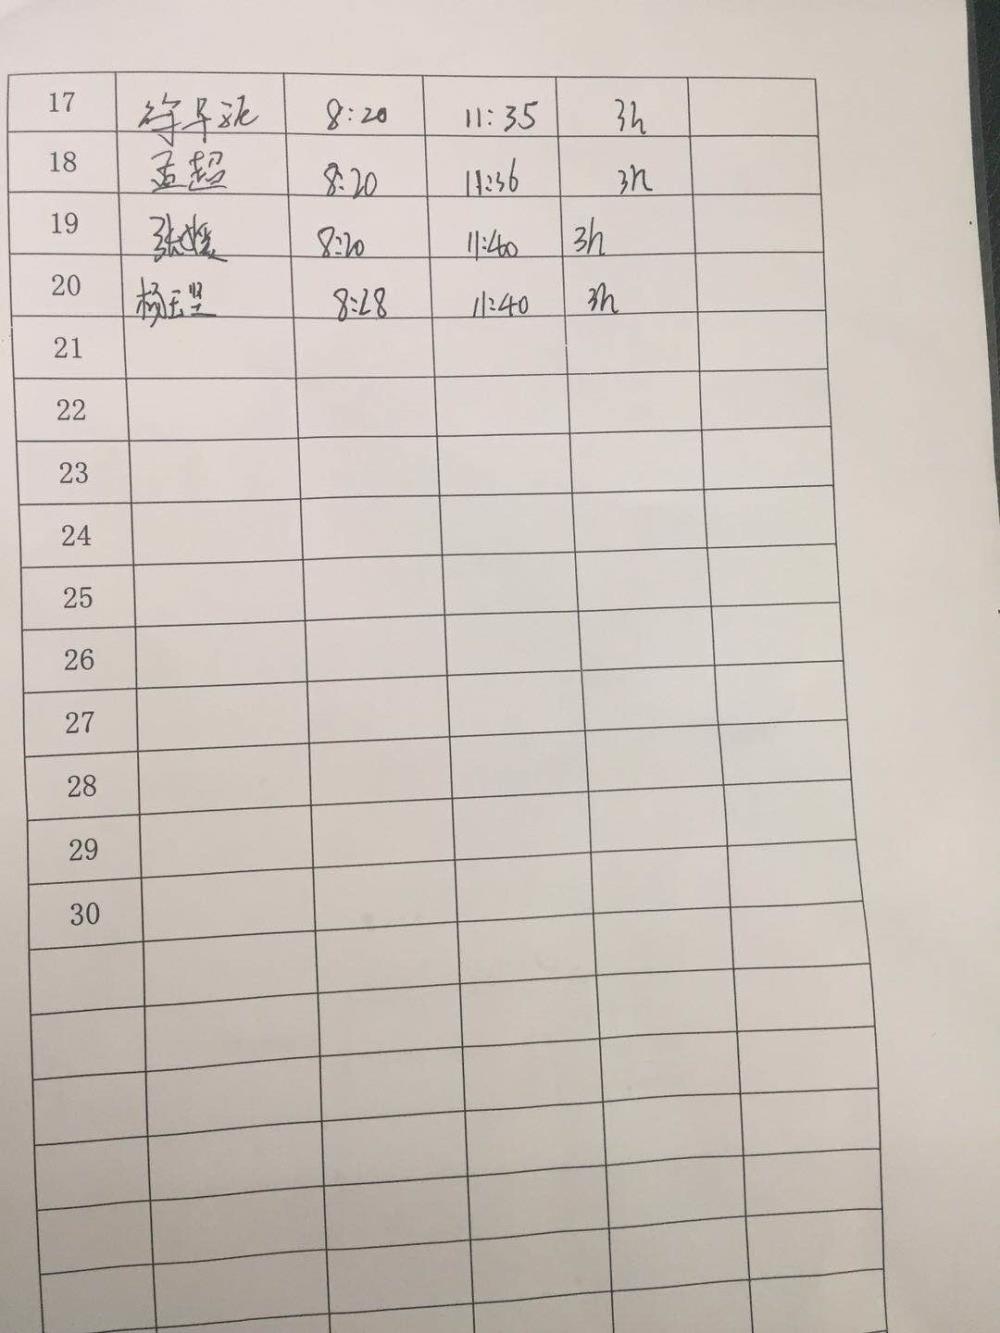 17 8:20 11:35 3h
18 孟超 8:20 11:36 3h
19 张媛 8:20 11:40 3h
20 杨玉坚 8:28 11:40 3h
21
22
23
24
25
26
27
28
29
30